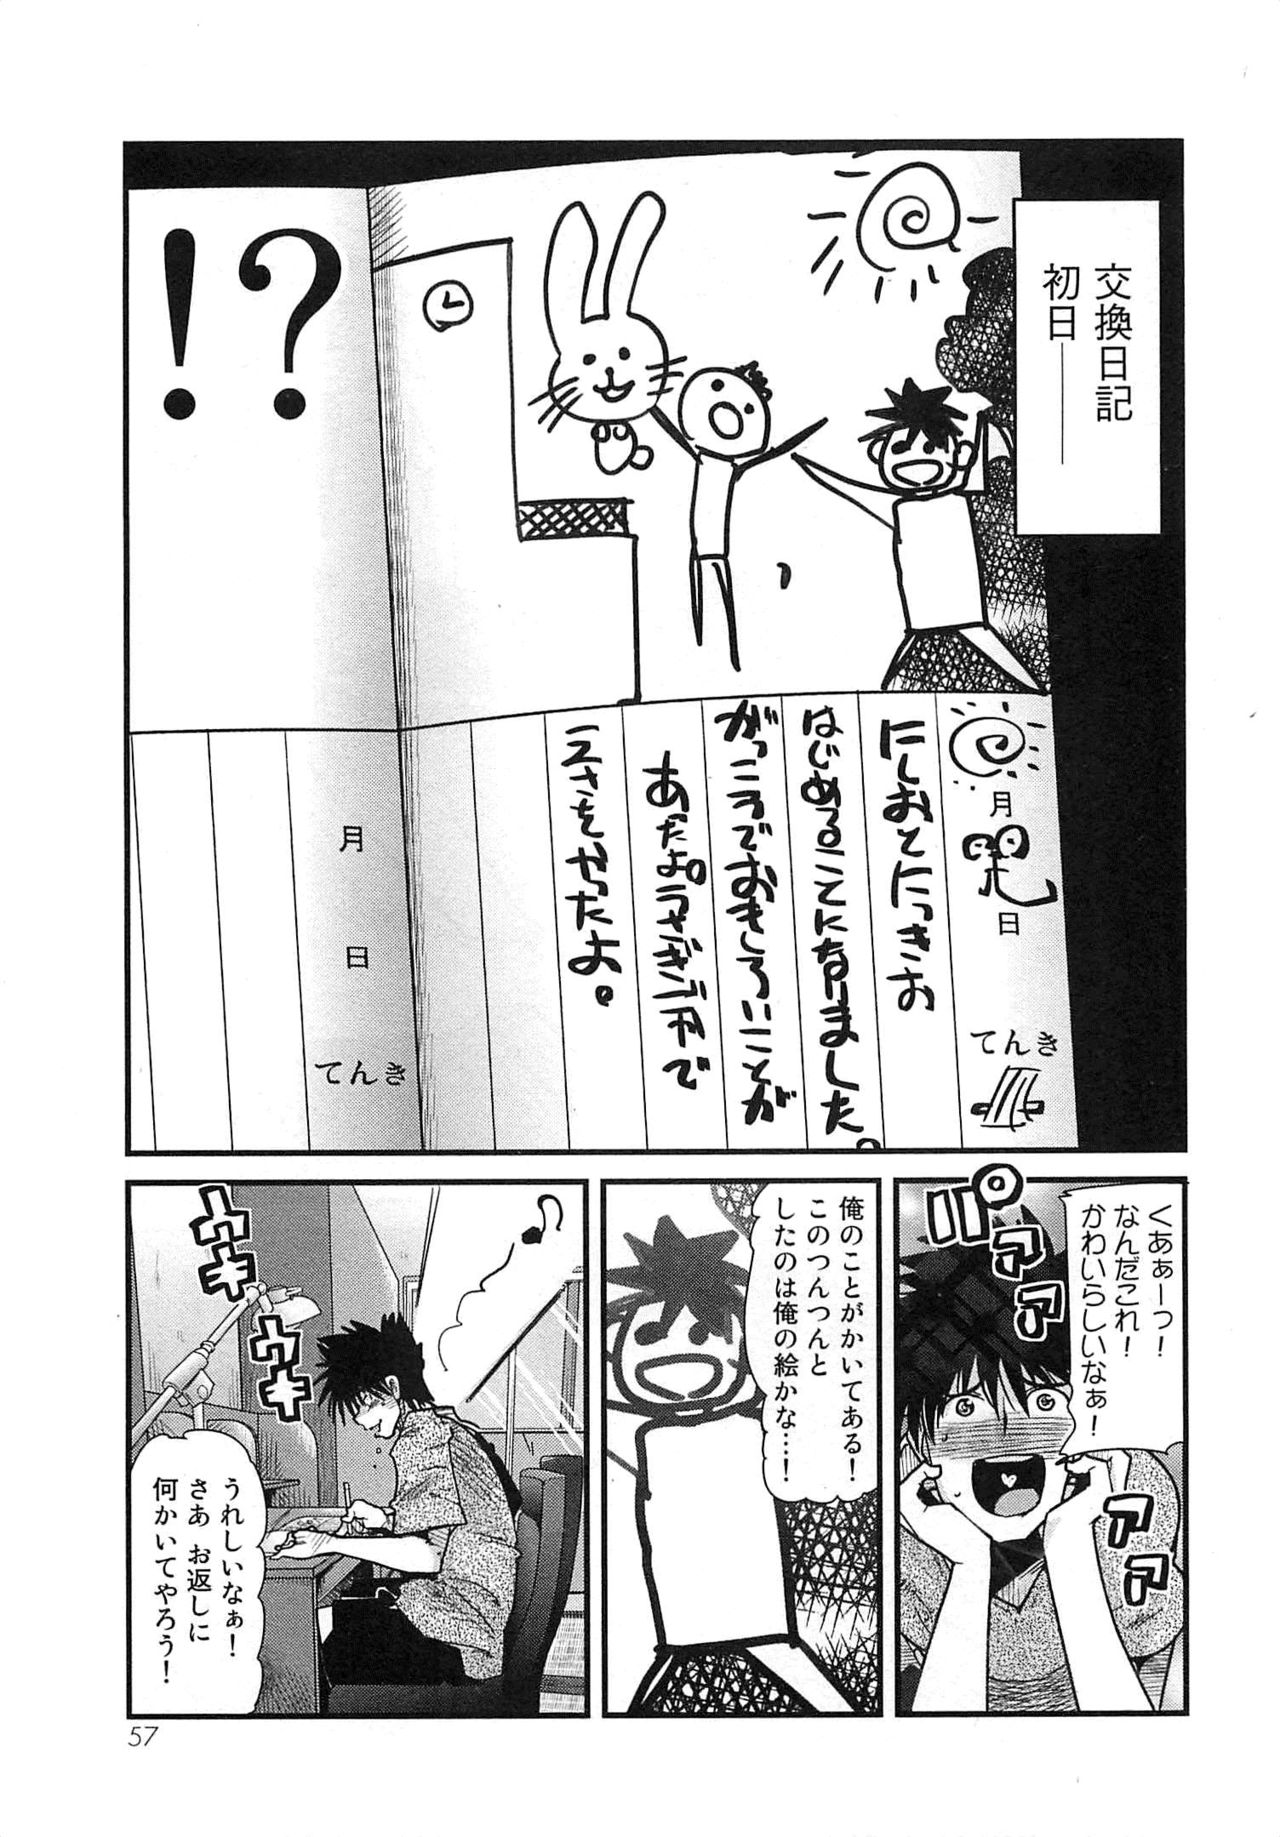 交換日記
初日――
!?
月
日
てんき
にしおとにっきお
はじめることになりました。
がっこうでおもしろいことが
あたよ。うさぎごやで
えさをやったよ。
月
日
てんき
くあぁーっ!
なんだこれ!
かわいらしいなぁ!
パアァアァ
俺のことがかいてある!
このつんつんと
したのは俺の絵かな…!
うれしいなぁ!
さあ お返しに
何かいてやろう!
ウキ
ウキ
57